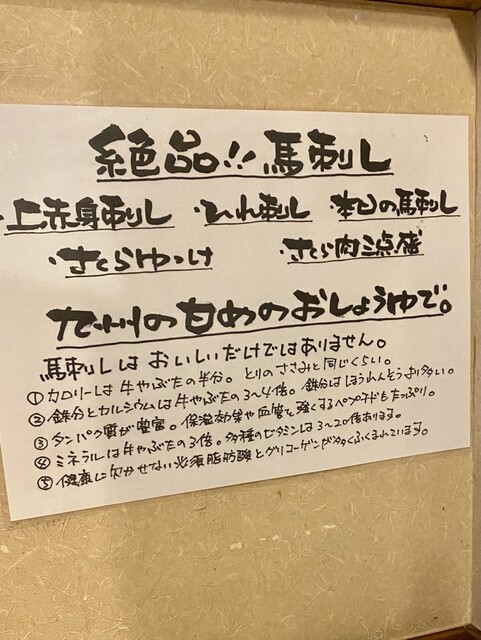 絶品!! 馬刺し
・上赤身刺し ・ひれ刺し ・本日の馬刺し
・さくらゆっけ ・さくら肉三点盛
九州の甘めのおしょうゆで。
馬刺しはおいしいだけではありません。
①カロリーは牛やぶたの半分。とりのささみと同じくらい。
②鉄分とカルシウムは牛やぶたの3〜4倍。鉄分はほうれんそうより多い。
③タンパク質が豊富。保湿効果や血管を強くするペプチドもたっぷり。
④ミネラルは牛やぶたの3倍。多種のビタミンは3〜20倍あります。
⑤健康に欠かせない必須脂肪酸とグリコーゲンが多くふくまれています。